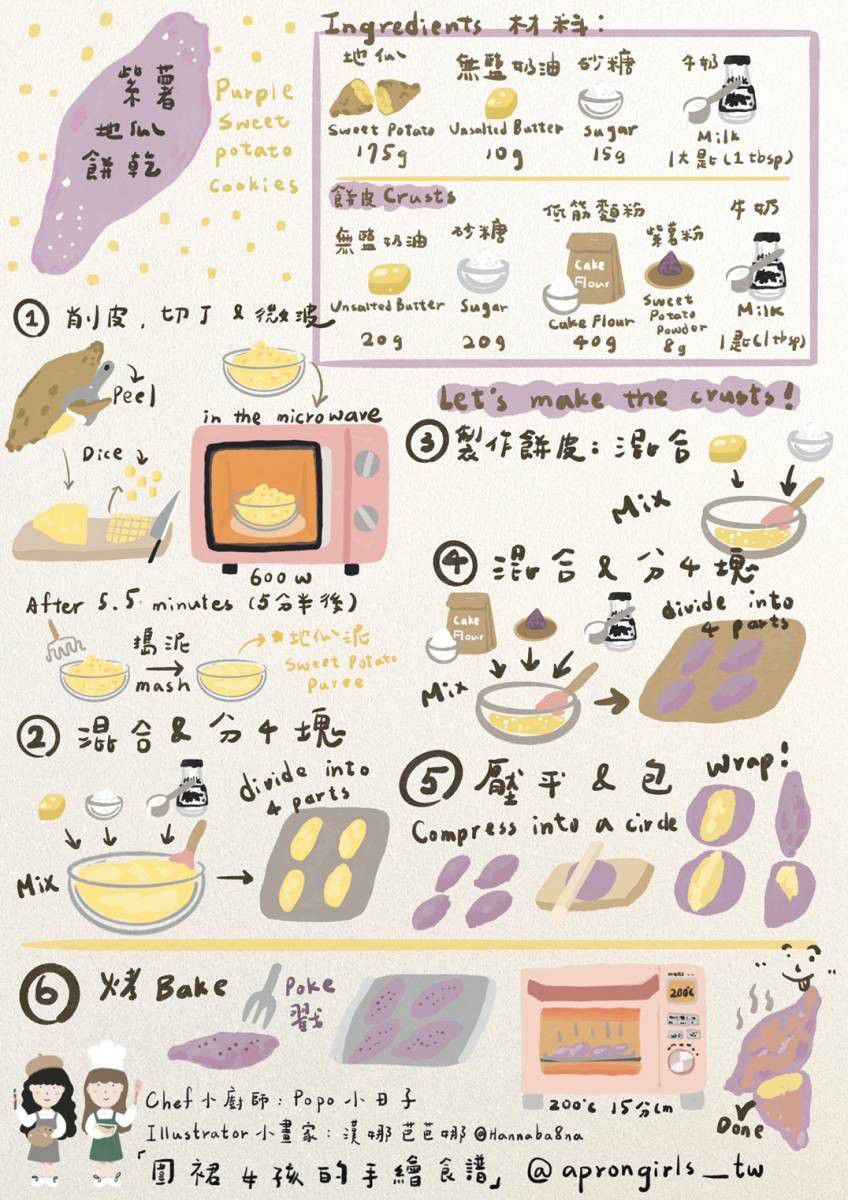 紫薯
地瓜
餅乾
Purple
Sweet
potato
cookies
Ingredients 材料:
地瓜 無鹽奶油 砂糖 牛奶
Sweet Potato Unsalted Butter Sugar Milk
175g 10g 15g 1大匙(1 tbsp)
餅皮 Crusts
無鹽奶油 砂糖 低筋麵粉 紫薯粉 牛奶
Cake Flour
Unsalted Butter Sugar Cake Flour Sweet Potato Powder Milk
20g 20g 40g 8g 1匙(1 tbsp)
① 削皮,切丁 & 微波
Peel
Dice
in the microwave
600 w
After 5.5 minutes (5分半後)
搗泥
mash
地瓜泥
Sweet Potato
Puree
② 混合 & 分4塊
Mix
divide into
4 parts
Let's make the crusts!
③ 製作餅皮:混合
Mix
④ 混合 & 分4塊
Cake Flour
Mix
divide into
4 parts
⑤ 壓平 & 包 Wrap!
Compress into a circle
⑥ 烤 Bake
Poke
戳
200℃
200℃ 15分鐘
Done
Chef 小廚師:Popo 小日子
Illustrator 小畫家:漢娜芭芭娜 @Hannaba8na
「圍裙女孩的手繪食譜」 @aprongirls_tw